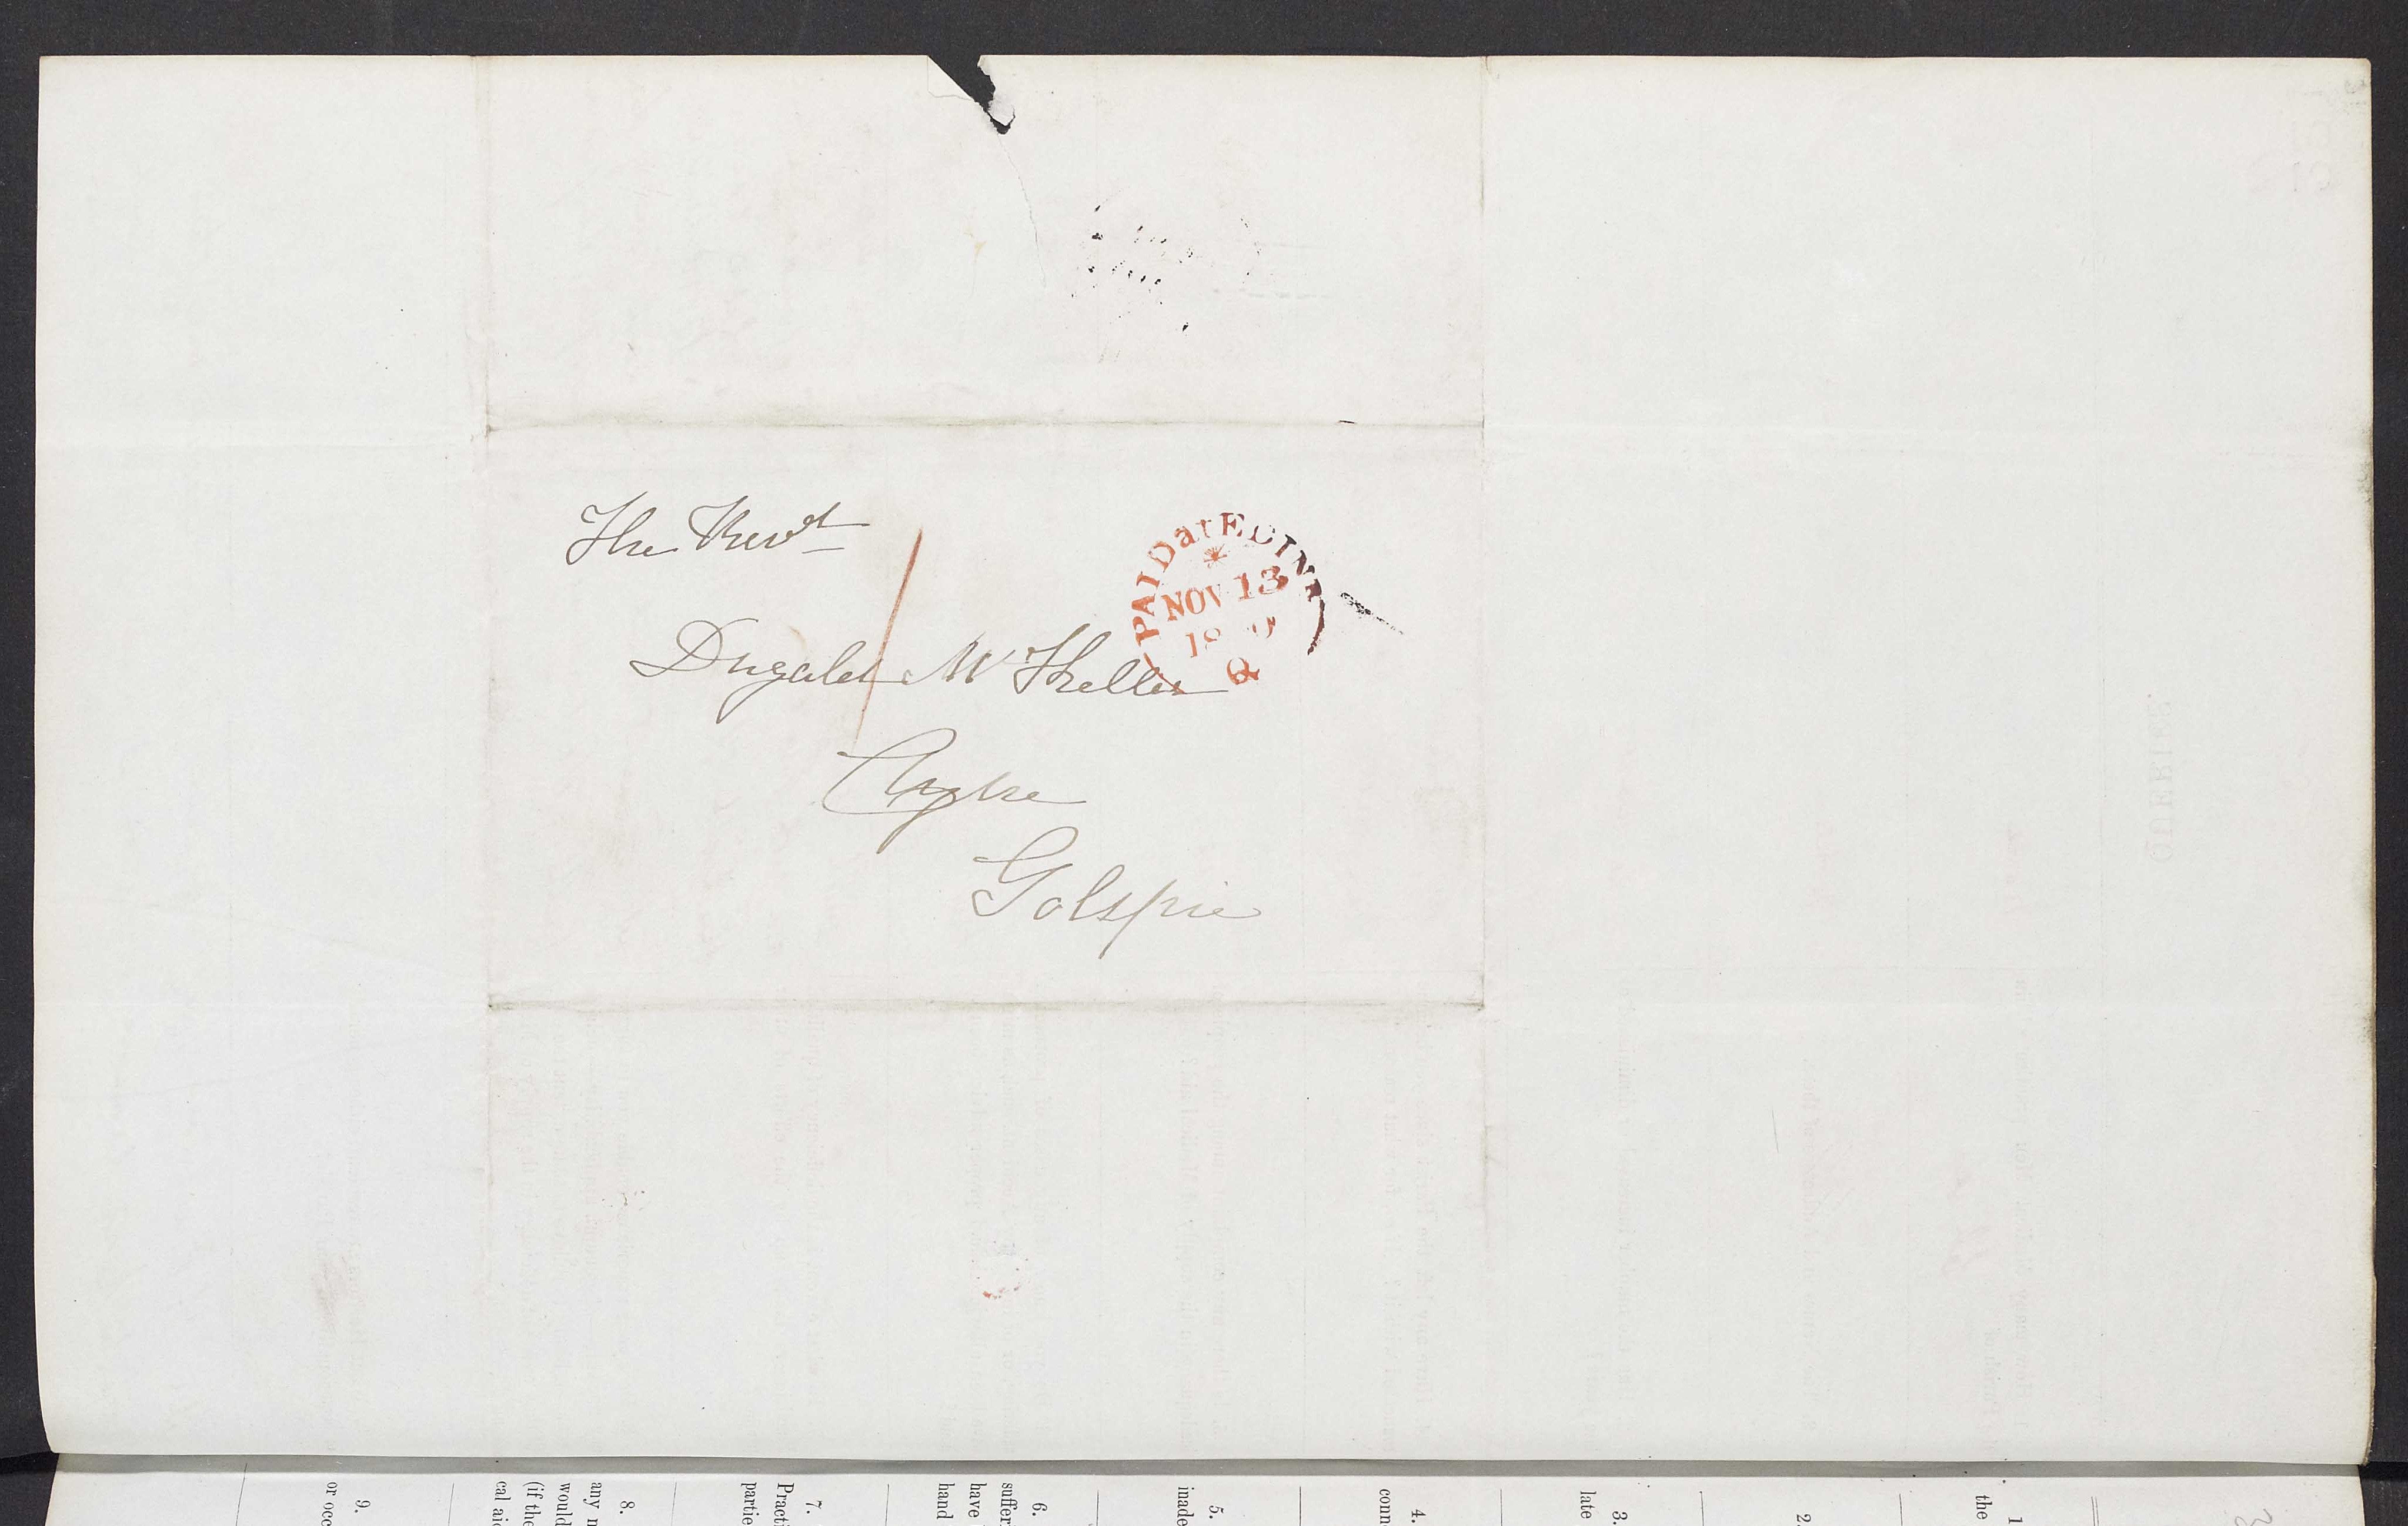 The Revd
Dugald Mc Kellar
Clyne
Golspie
PAID at EDINR
NOV 13
Q
1
the
2.
3.
late
4.
conn
5.
inade
6.
suffer
have
hand
7.
Practi
partie
8.
any n
would
(if the
cal aid
9.
or occ